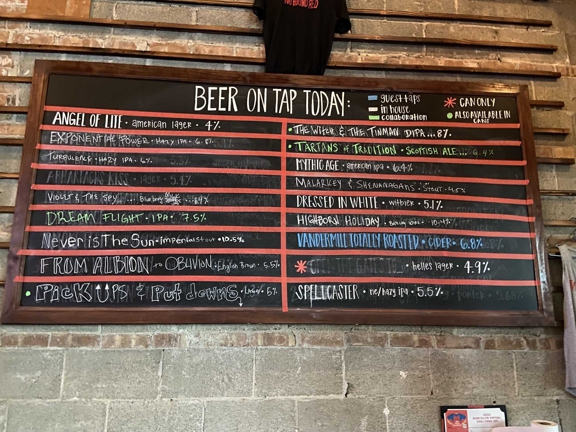 BEER ON TAP TODAY:
guest taps
in house
collaboration
CAN ONLY
ALSO AVAILABLE IN CANS
ANGEL OF LITE • american lager • 4%
EXPONENTIAL POWER • HAZY IPA •
TURBULENCE • HAZY IPA • 6%
VIOLET & THE SKY
DREAM FLIGHT • IPA • 7.5%
Never is The Sun • Imperial Stout • 10.5%
FROM ALBION to OBLIVION • English Brown • 5.5%
PICK UPS & Put downs
THE WIFER & THE TINMAN DIPA ... 8%
TARTANS of TRADITION • SCOTTISH ALE
MYTHIC AGE • american ipa • 6.4%
MALARKEY & SHENANAGANS • STOUT
DRESSED IN WHITE • witbier • 5.1%
HIGHBORN HOLIDAY
VANDERMILL TOTALLY ROASTED • CIDER • 6.8%
helles lager • 4.9%
SPELLCASTER • ne/hazy ipa • 5.5%